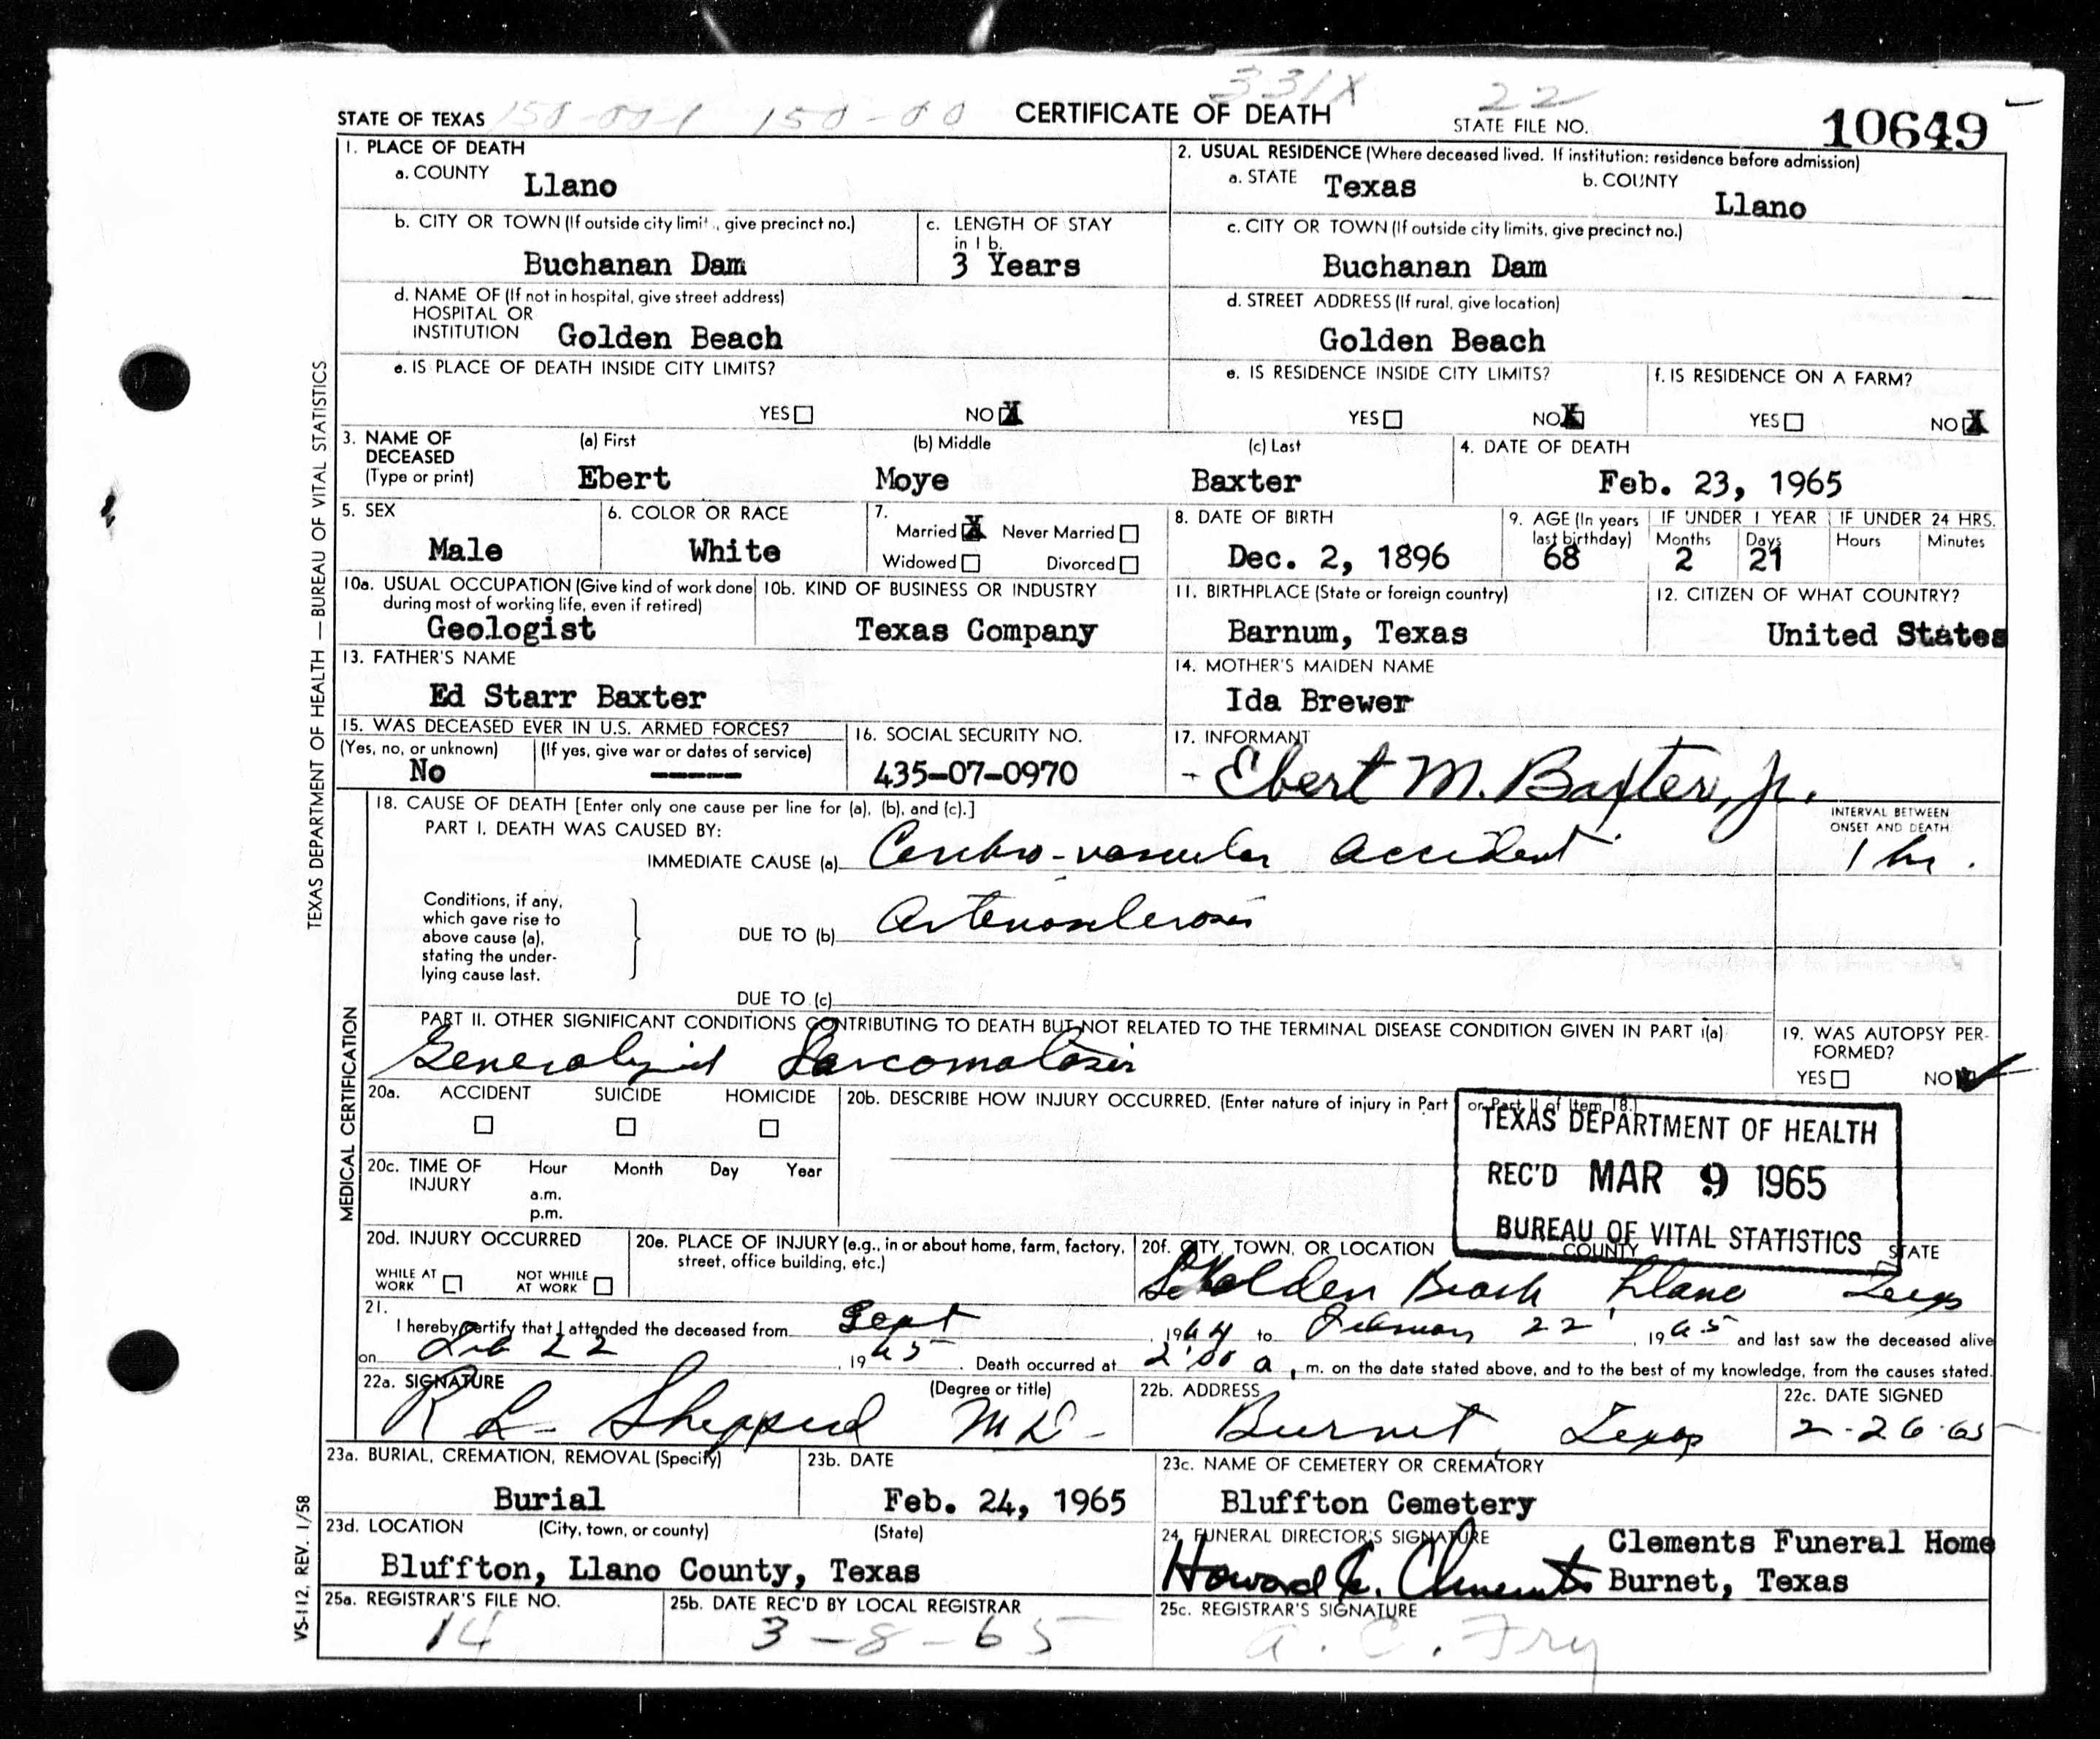 331X 22
STATE OF TEXAS 150-00-1 150-00 CERTIFICATE OF DEATH STATE FILE NO. 10649
1. PLACE OF DEATH
a. COUNTY Llano
2. USUAL RESIDENCE (Where deceased lived. If institution: residence before admission)
a. STATE Texas b. COUNTY Llano
b. CITY OR TOWN (If outside city limit , give precinct no.)
Buchanan Dam
c. LENGTH OF STAY
in 1 b.
3 Years
c. CITY OR TOWN (If outside city limits, give precinct no.)
Buchanan Dam
d. NAME OF (If not in hospital, give street address)
HOSPITAL OR
INSTITUTION Golden Beach
d. STREET ADDRESS (If rural, give location)
Golden Beach
e. IS PLACE OF DEATH INSIDE CITY LIMITS?
YES NO X
e. IS RESIDENCE INSIDE CITY LIMITS?
YES NO X
f. IS RESIDENCE ON A FARM?
YES NO X
3. NAME OF
DECEASED
(Type or print)
(a) First (b) Middle (c) Last
Ebert Moye Baxter
4. DATE OF DEATH
Feb. 23, 1965
5. SEX
Male
6. COLOR OR RACE
White
7.
Married X Never Married
Widowed Divorced
8. DATE OF BIRTH
Dec. 2, 1896
9. AGE (In years
last birthday)
68
IF UNDER 1 YEAR
Months Days
2 21
IF UNDER 24 HRS.
Hours Minutes
10a. USUAL OCCUPATION (Give kind of work done
during most of working life, even if retired)
Geologist
10b. KIND OF BUSINESS OR INDUSTRY
Texas Company
11. BIRTHPLACE (State or foreign country)
Barnum, Texas
12. CITIZEN OF WHAT COUNTRY?
United States
13. FATHER'S NAME
Ed Starr Baxter
14. MOTHER'S MAIDEN NAME
Ida Brewer
15. WAS DECEASED EVER IN U.S. ARMED FORCES?
(Yes, no, or unknown) (If yes, give war or dates of service)
No -----
16. SOCIAL SECURITY NO.
435-07-0970
17. INFORMANT
- Ebert M. Baxter, Jr.
18. CAUSE OF DEATH [Enter only one cause per line for (a), (b), and (c).]
PART I. DEATH WAS CAUSED BY:
IMMEDIATE CAUSE (a) Cerebro-vascular accident
INTERVAL BETWEEN
ONSET AND DEATH
1 hr.
Conditions, if any,
which gave rise to
above cause (a),
stating the under-
lying cause last.
DUE TO (b) Arteriosclerosis
DUE TO (c)
PART II. OTHER SIGNIFICANT CONDITIONS CONTRIBUTING TO DEATH BUT NOT RELATED TO THE TERMINAL DISEASE CONDITION GIVEN IN PART I(a)
Generalized Sarcomatosis
19. WAS AUTOPSY PER-
FORMED?
YES NO
20a. ACCIDENT SUICIDE HOMICIDE
20b. DESCRIBE HOW INJURY OCCURRED. (Enter nature of injury in Part I or Part II of Item 18.)
TEXAS DEPARTMENT OF HEALTH
REC'D MAR 9 1965
BUREAU OF VITAL STATISTICS
20c. TIME OF
INJURY
Hour Month Day Year
a.m.
p.m.
20d. INJURY OCCURRED
WHILE AT
WORK
NOT WHILE
AT WORK
20e. PLACE OF INJURY (e.g., in or about home, farm, factory,
street, office building, etc.)
20f. CITY, TOWN, OR LOCATION COUNTY STATE
Golden Beach Llano Texas
21.
I hereby certify that I attended the deceased from Sept , 1964 to February 22 , 1965 and last saw the deceased alive
on Feb 22 , 1965 . Death occurred at 2:00 a . m. on the date stated above, and to the best of my knowledge, from the causes stated.
22a. SIGNATURE (Degree or title)
R L Sheppard MD-
22b. ADDRESS
Burnet, Texas
22c. DATE SIGNED
2-26-65
23a. BURIAL, CREMATION, REMOVAL (Specify)
Burial
23b. DATE
Feb. 24, 1965
23c. NAME OF CEMETERY OR CREMATORY
Bluffton Cemetery
23d. LOCATION (City, town, or county) (State)
Bluffton, Llano County, Texas
24. FUNERAL DIRECTOR'S SIGNATURE
Howard Clements
Clements Funeral Home
Burnet, Texas
25a. REGISTRAR'S FILE NO.
14
25b. DATE REC'D BY LOCAL REGISTRAR
3-8-65
25c. REGISTRAR'S SIGNATURE
A. C. Fry
TEXAS DEPARTMENT OF HEALTH — BUREAU OF VITAL STATISTICS
MEDICAL CERTIFICATION
VS-112, REV. 1/58